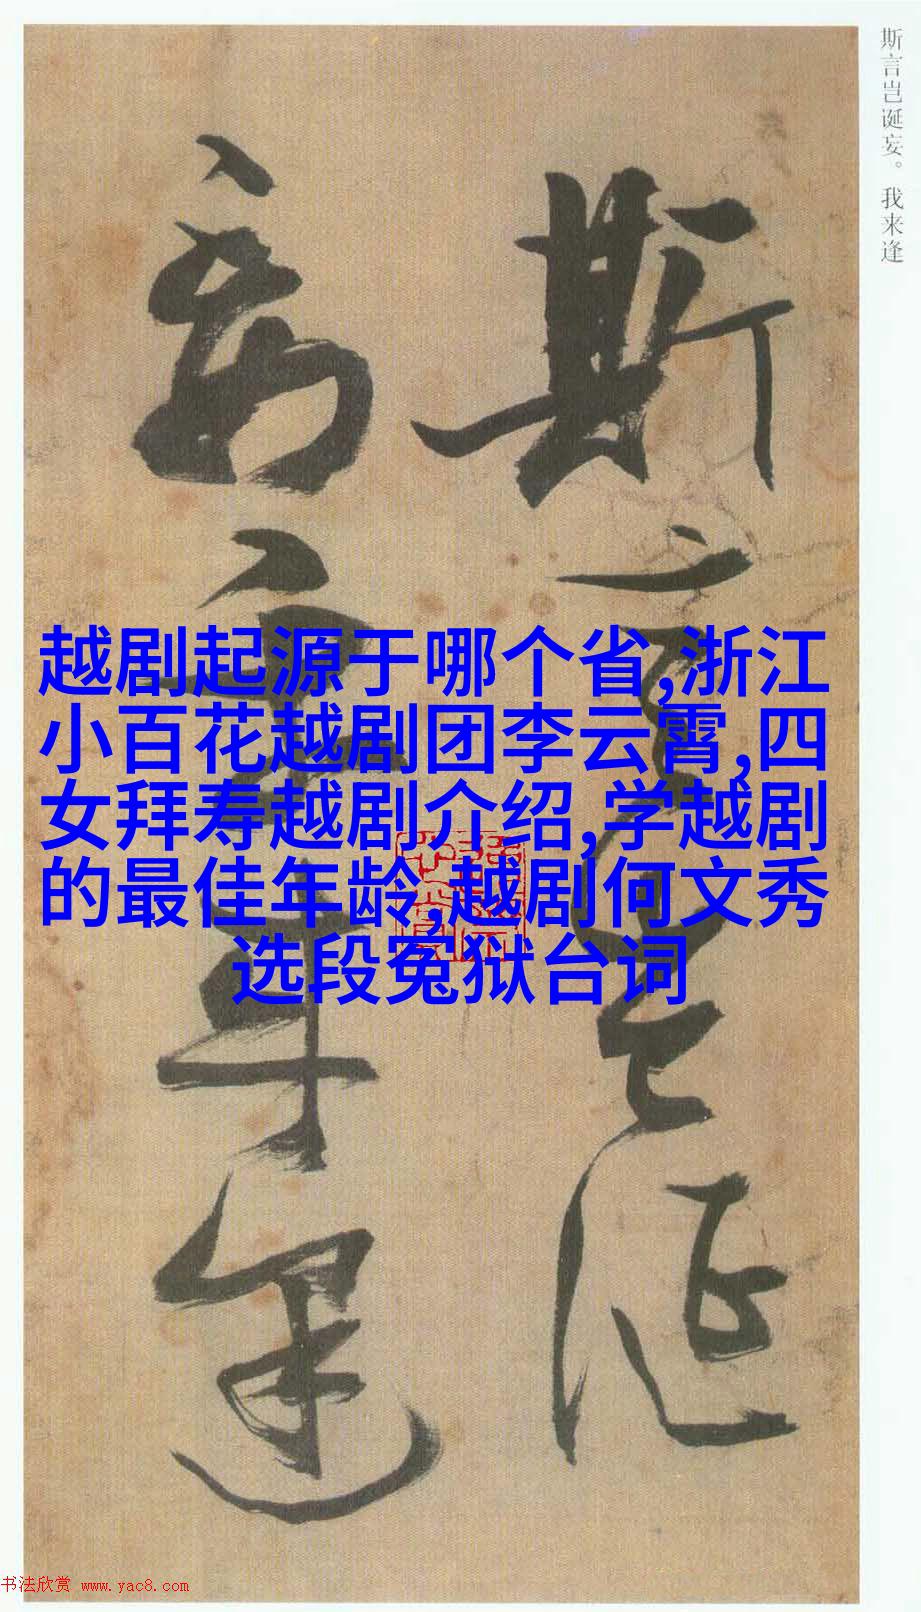 斯言岂诞妄。我来逢
斯言豈誕
妄我來逢
越剧起源于哪个省,浙江
小百花越剧团李云霄,四
女拜寿越剧介绍,学越剧
的最佳年龄,越剧何文秀
选段冤狱台词
书法欣赏 www.yac8.com